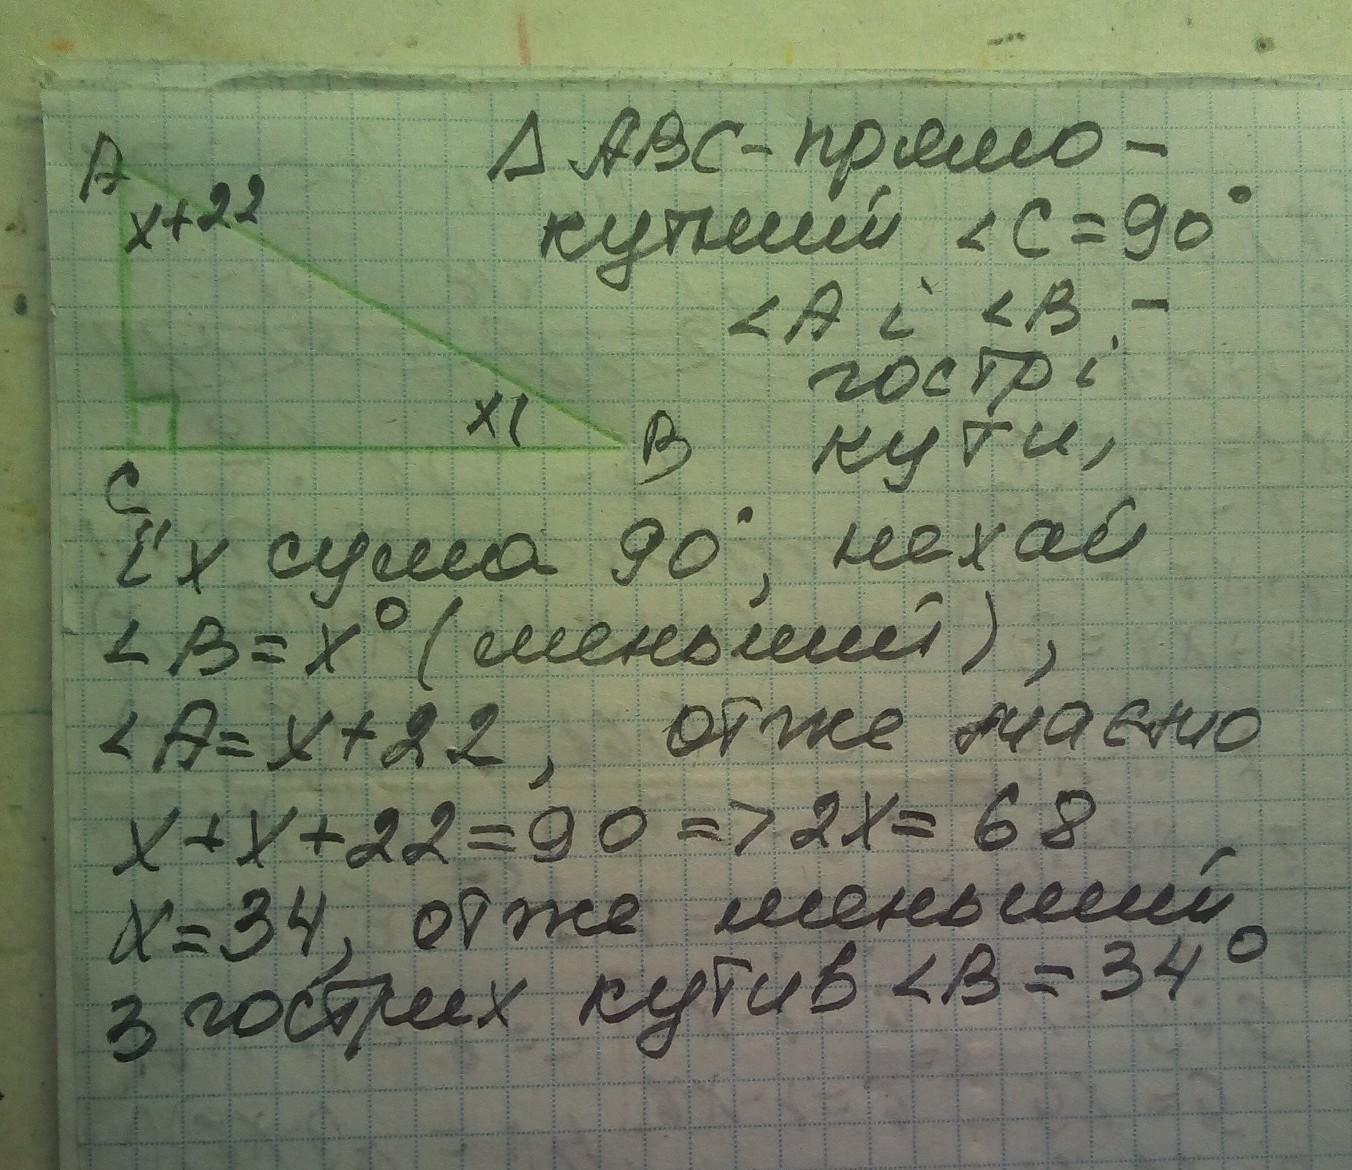 A
x+22
x
B
C
Δ ABC - прямо -
кутний <C = 90°
<A і <B -
гострі
кути,
їх сума 90°, нехай
<B = x° (меньший),
<A = x+22, отже маємо
x+x+22=90 => 2x= 68
x=34, отже меньший
з гострих кутив <B = 34°